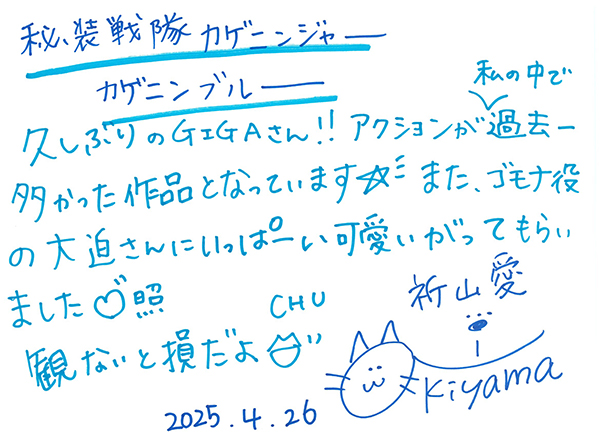 秘装戦隊カゲニンジャー
カゲニンブルー
久しぶりのGIGAさん!!アクションが私の中で過去一
多かった作品となっています☆彡また、ゴモナ役
の大迫さんにいっぱーい可愛いがってもらい
ました♡照
CHU
観ないと損だよ
祈山愛
Kiyama
2025.4.26